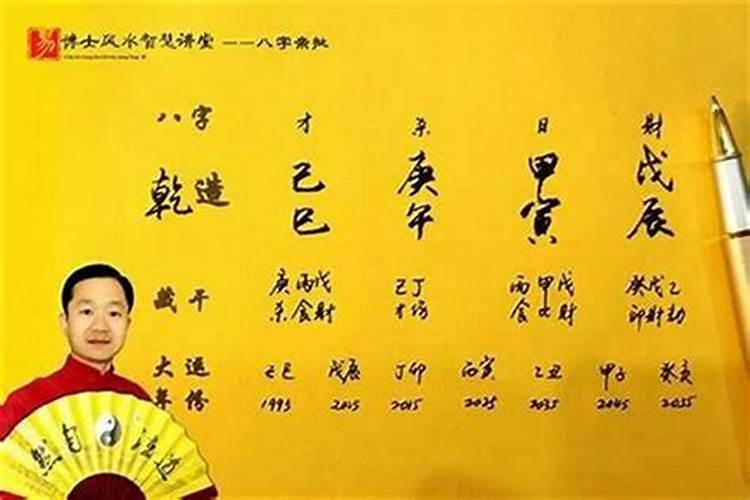 易 博士风水智慧讲堂 ——八字亲批
八字 才 杀 日 财
乾造 己 庚 甲 戊
巳 午 寅 辰
藏干 庚丙戊 己丁 丙甲戊 癸戊乙
杀食财 才伤 食 财 印财劫
大运 己巳 戊辰 丁卯 丙寅 乙丑 甲子 癸亥
年份 1995 2005 2015 2025 2035 2045 2055
然自法道